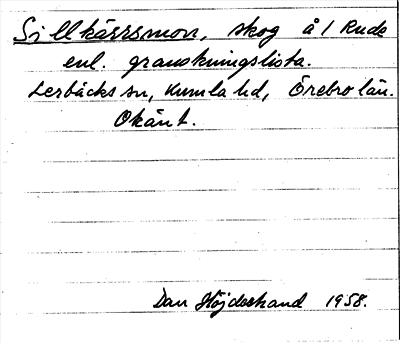 Sillkärrsmon, skog å 1 Rude
enl. granskningslista.
Lerbäcks sn, Kumla hd, Örebro län.
Okänt.
Dan Höjdestrand 1958.